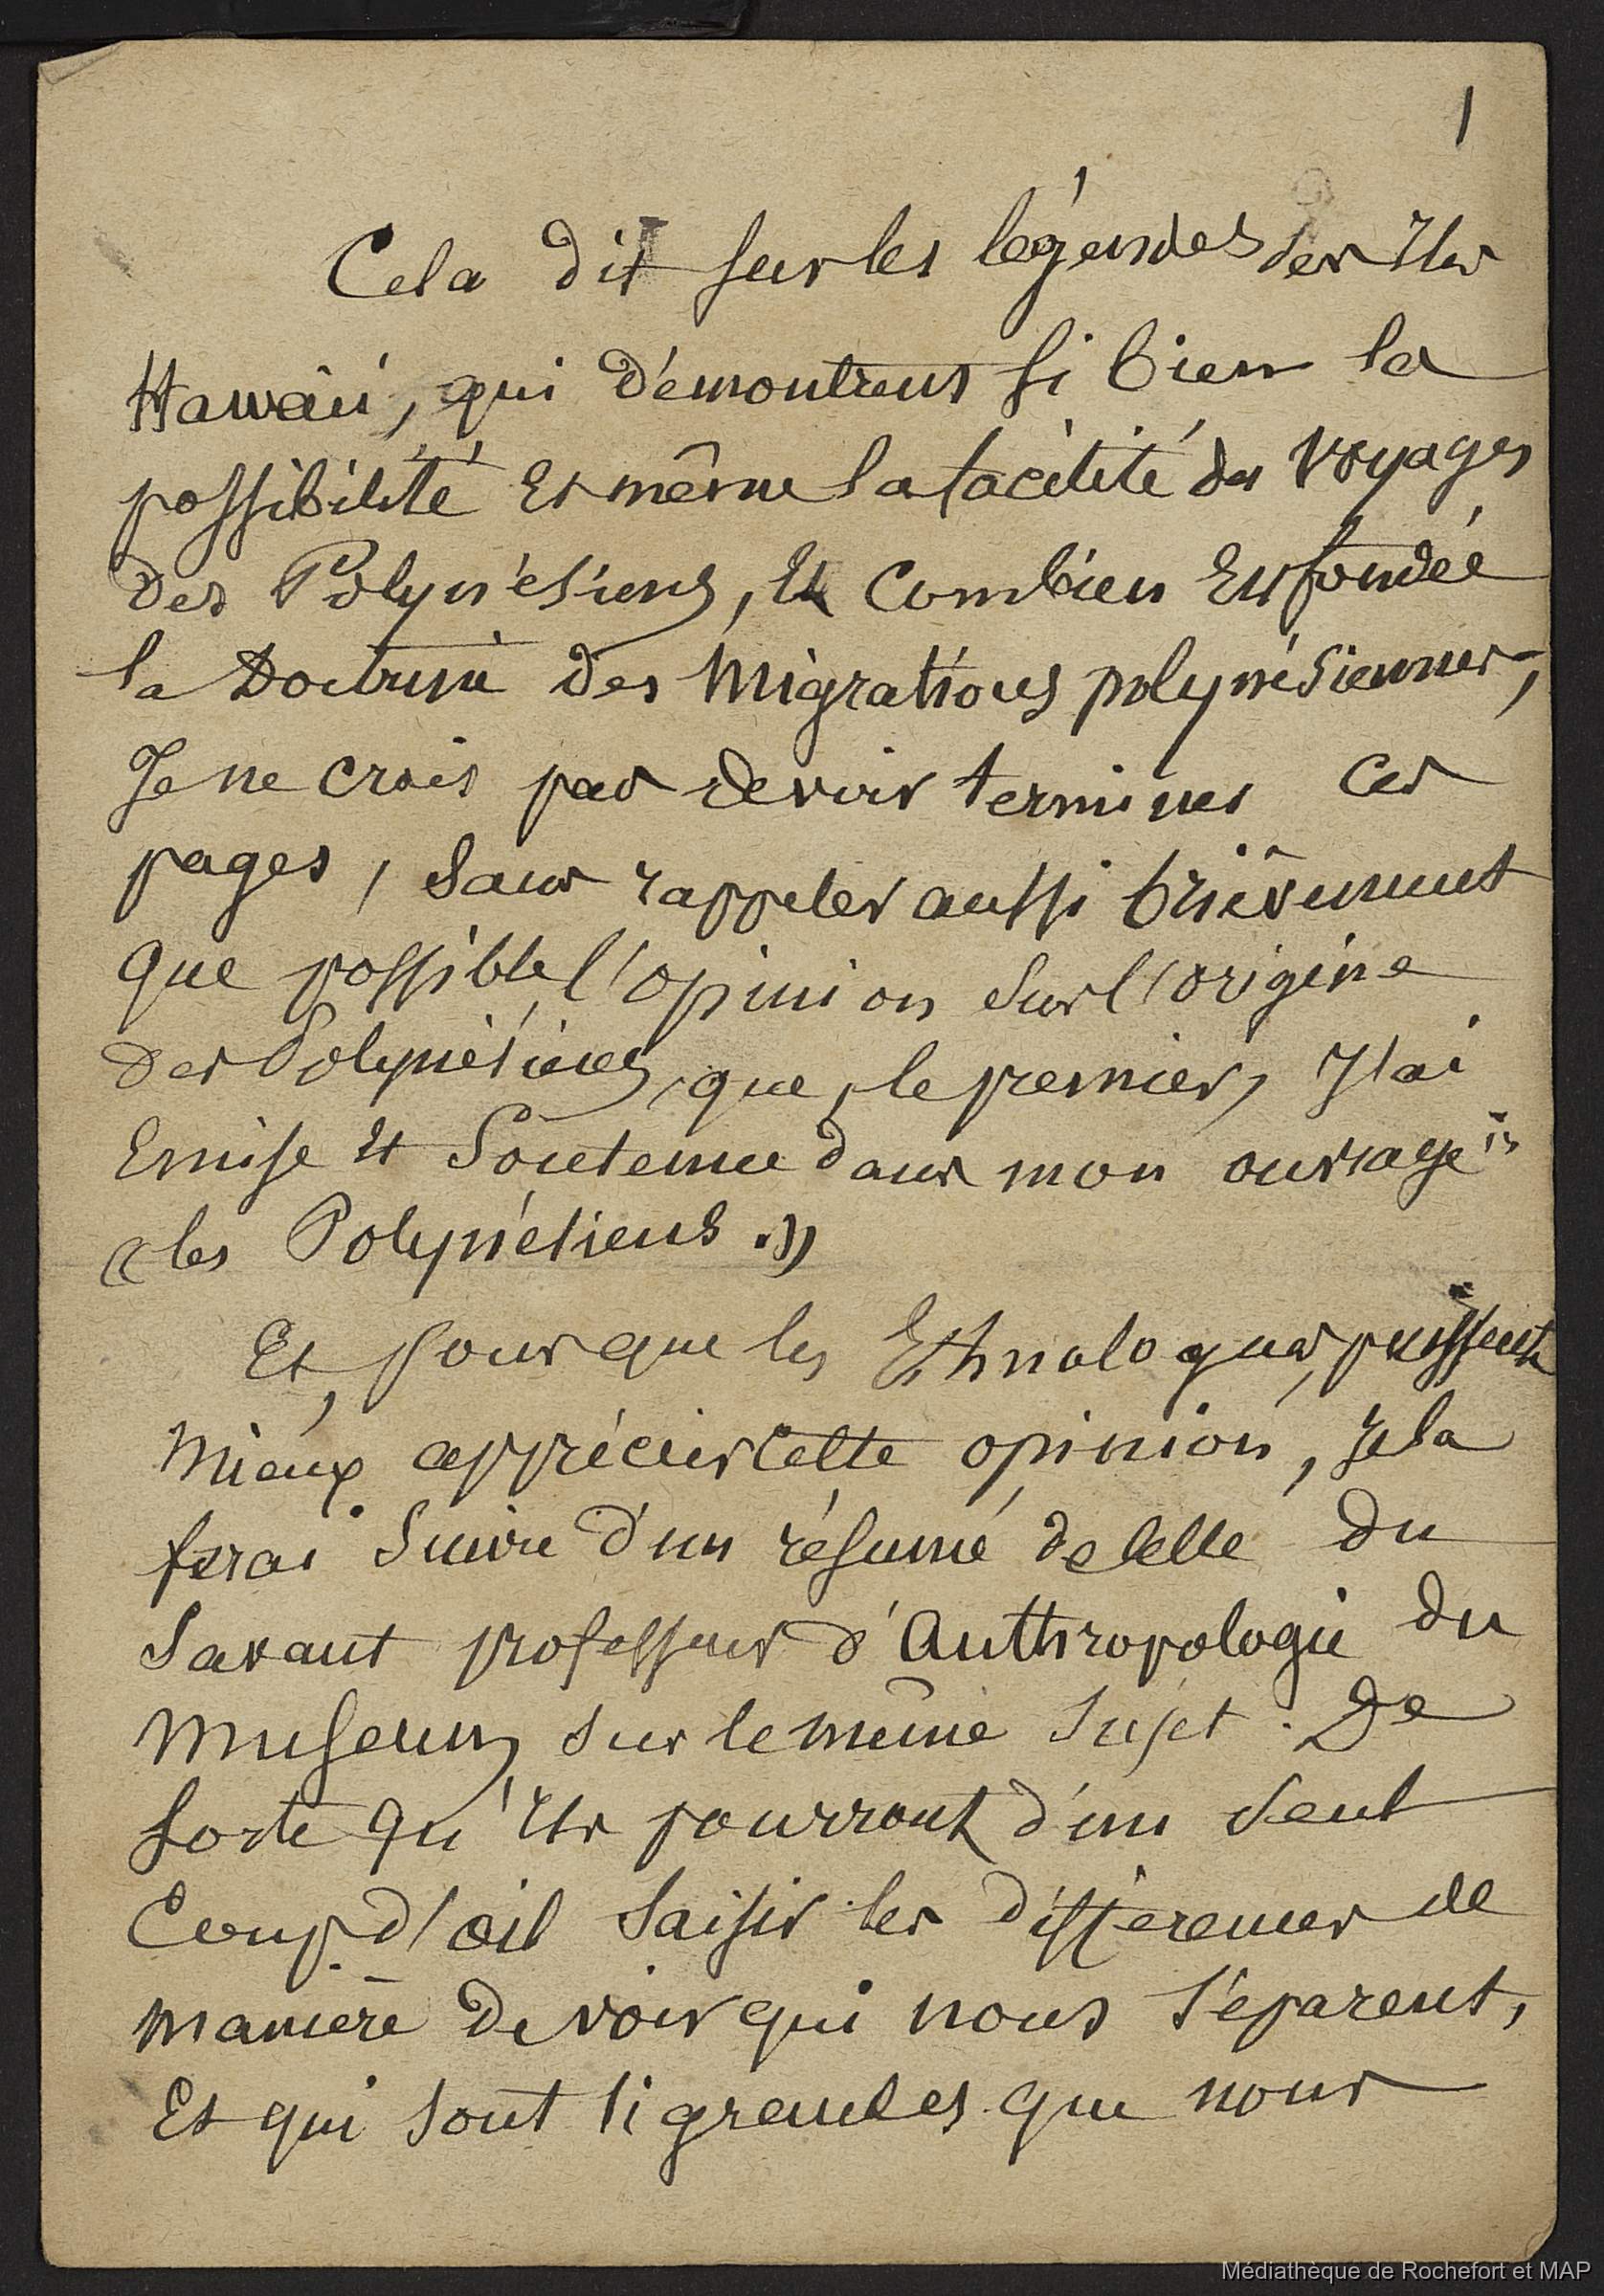 1
Cela dit sur les légendes des Iles
Hawaii, qui démontrent si bien la
possibilité et même la facilité des voyages
des Polynésiens, et combien est fondée
la Doctrine des Migrations polynésiennes,
Je ne crois pas devoir terminer ces
pages, sans rappeler aussi brièvement
que possible, l'opinion sur l'origine
des Polynésiens, que, le premier, J'ai
Emise et Soutenue dans mon ouvrage :
« les Polynésiens. »
Et, pour que les Ethnologues, puissent
mieux apprécier cette opinion, Je la
ferai Suivre d'un résumé de celle du
Savant professeur d'Anthropologie du
Museum, sur le même Sujet. De
Sorte qu'Ils pourront d'un Seul
Coup d'œil Saisir les différences de
manière de voir qui nous Séparent,
Et qui sont si grandes que nous
Médiathèque de Rochefort et MAP